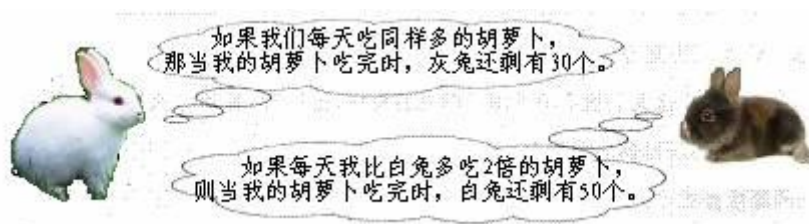 如果我们每天吃同样多的胡萝卜，
那当我的胡萝卜吃完时，灰兔还剩有30个。
如果每天我比白兔多吃2倍的胡萝卜，
则当我的胡萝卜吃完时，白兔还剩有50个。